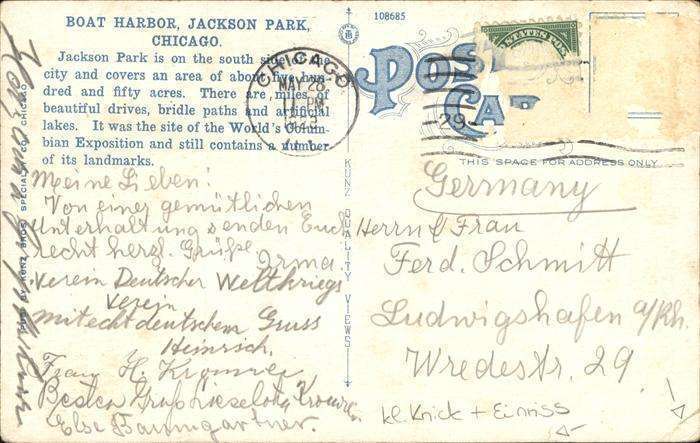 BOAT HARBOR, JACKSON PARK,
CHICAGO.
Jackson Park is on the south side of the
city and covers an area of about five hun-
dred and fifty acres. There are miles of
beautiful drives, bridle paths and artificial
lakes. It was the site of the World's Colum-
bian Exposition and still contains a number
of its landmarks.
108685
POST
CAR
CHICAGO
MAY 28
PM
ILL.
29
STATES POS
THIS SPACE FOR ADDRESS ONLY
KUNZ QUALITY VIEWS
PUB. BY KUNZ BROS. SPECIALTY CO., CHICAGO
Meine Lieben!
Von einer gemütlichen
Unterhaltung senden Euch
recht herzl. Grüße
Irma.
Verein Deutscher Weltkriegs
Verein
mit echt deutschem Gruss
Heinrich.
Franz H. Kronner
Besten Gruß Lieselotte Kronner
Else Baumgartner.
Germany
Herrn & Frau
Ferd. Schmitt
Ludwigshafen a/Rh.
Wredestr. 29
kl. Knick + Einriss